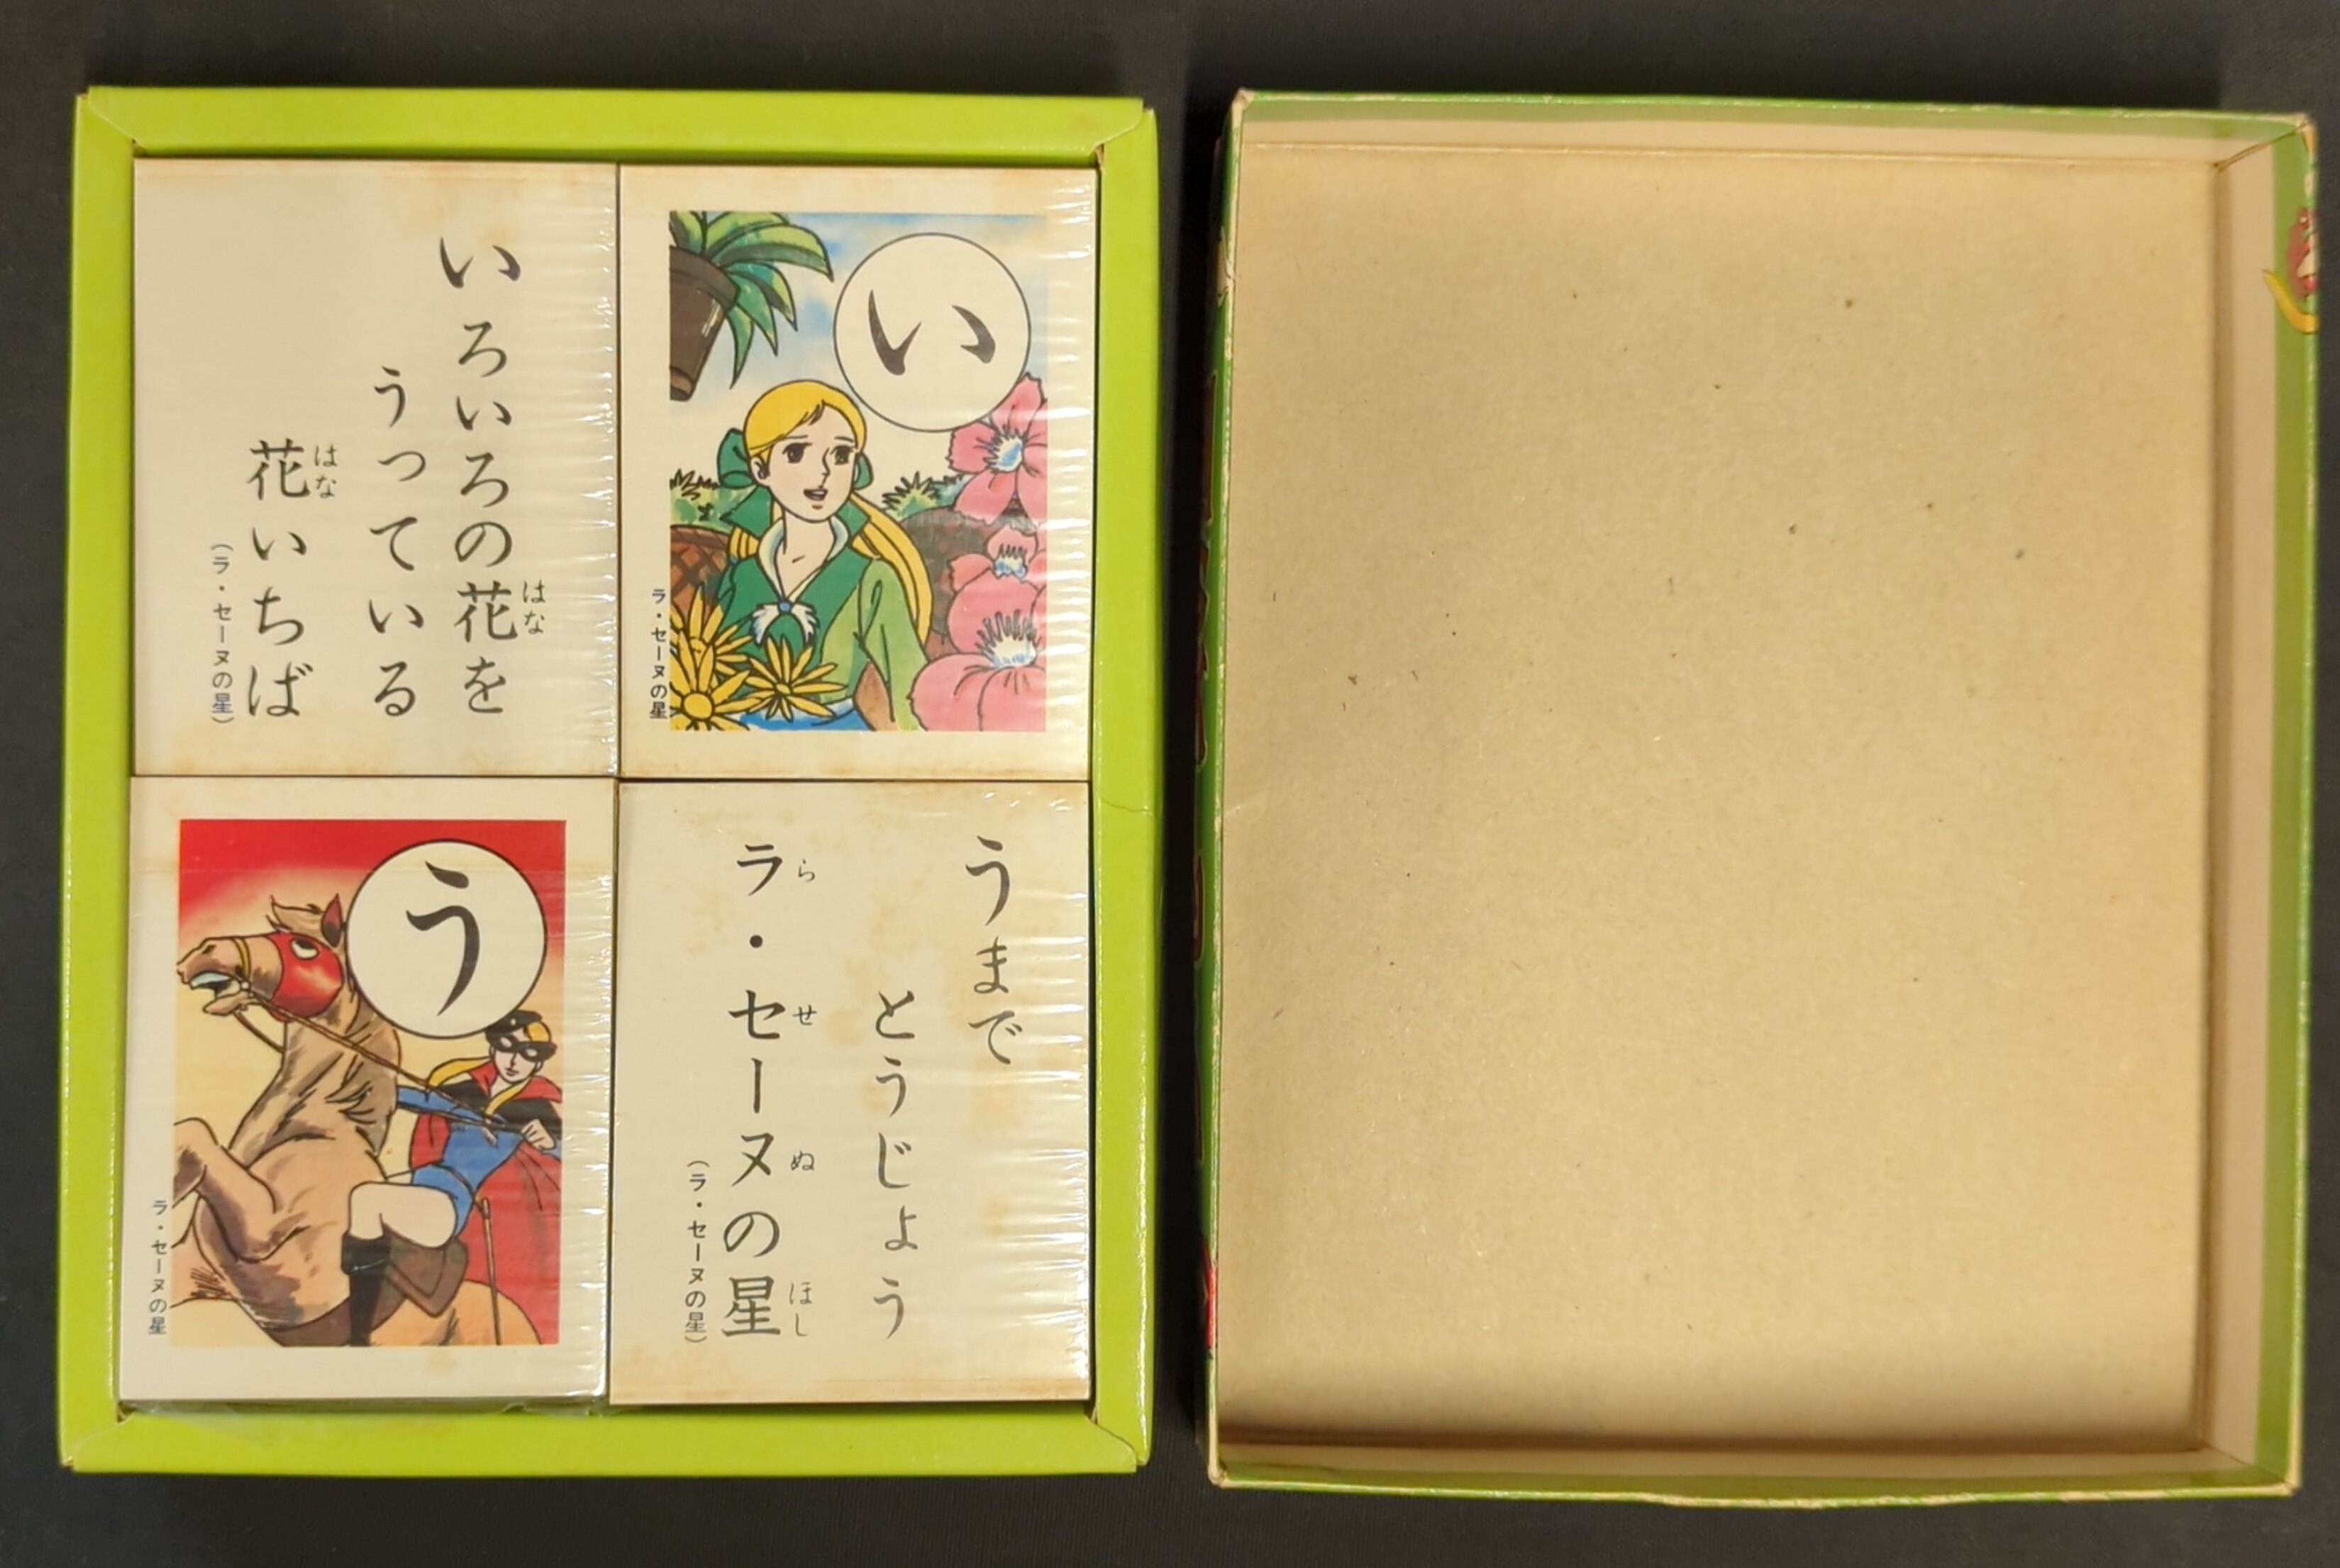 いろいろの花を
はな
うっている
花いちば
はな
(ラ・セーヌの星)
い
ラ・セーヌの星
う
ラ・セーヌの星
うまで
とうじょう
ラ・セーヌの星
らせぬほし
(ラ・セーヌの星)